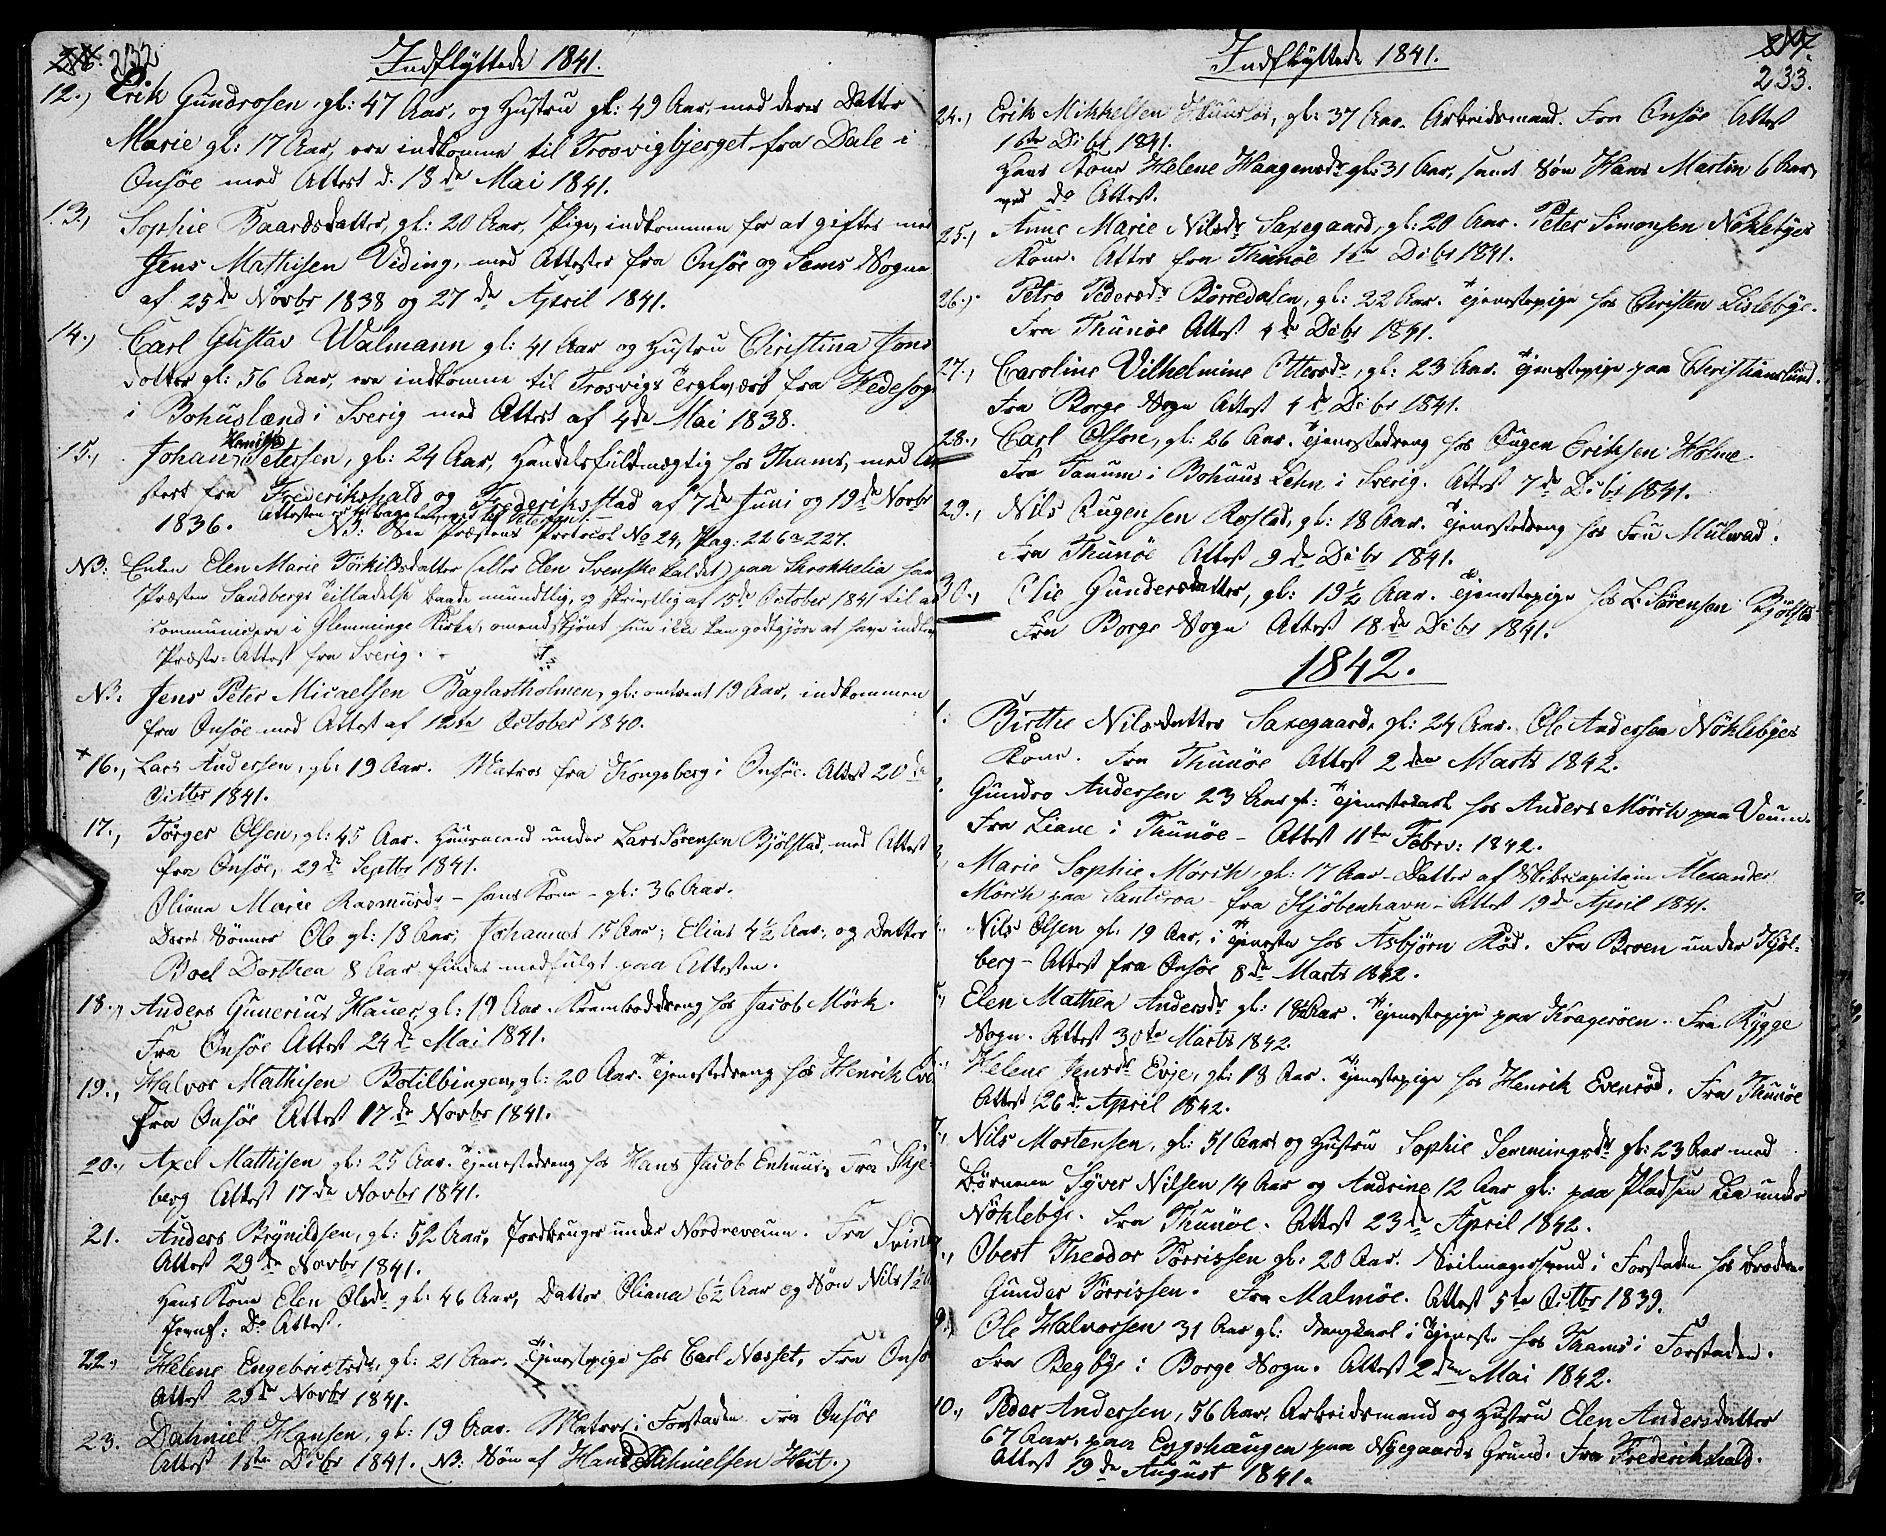 232
Indflyttede 1841.
12., Erik Gundrosen, gl: 47 Aar, og Hustru gl: 49 Aar, med deres Datter
Marie gl: 17 Aar, ere indkomne til Trosvigbjerget fra Dale i
Onsöe med Attest d: 13de Mai 1841.
13., Sophie Baardsdatter, gl: 20 Aar, Pige, indkommen for at giftes med
Jens Mathisen Viding, med Attester fra Onsöe og Sems Sogne
af 25de Novbr 1838 og 27de April 1841.
14., Carl Gustav Walmann gl: 41 Aar og Hustru Christina Jons
dotter gl: 56 Aar, ere indkomne til Trosvigs Teglværk fra
i Bohuslænd i Sverig med Attest af 4de Mai 1838.
15., Johan Petersen, gl: 24 Aar, Handelsfuldmægtig hos Thams, med At
stest fra Frederikshald og Frederiksstad af 7de Juni og 19de Novbr
1836. NB: See Præstens Protocol No 24, Pag: 226 & 227.
NB: Enken Elen Marie Törkildsdatter (eller Elen Svenske kaldet) paa har
Præsten Sandbergs Tilladelse baade mundtlig, og skriftlig af 15de October 1841 til at
communicere i Glemminge Kirke, omendskjönt hun ikke kan godtgjöre at have
Præste-Attest fra Sverig.
NB: Jens Peter Micaelsen Baglastholmen, gl: omtrent 19 Aar, indkommen
fra Onsöe med Attest af 12te October 1840.
+16., Lars Andersen, gl: 19 Aar. Matros fra Kongsberg i Onsöe. Attest 20de
Octbr 1841.
17., Törger Olsen, gl: 45 Aar. Huusmand under Lars Sörensen Bjölstad, med Attest
fra Onsöe, 29de Septbr 1841.
Oliana Marie Rasmusdr - hans Kone - gl: 36 Aar.
Deres Sönner Ole gl: 18 Aar; Johannes 15 Aar; Elias 4½ Aar, og Datter
Boel Dorthea 8 Aar findes medfulgt paa Attesten.
18., Anders Gunerius Hauer, gl: 19 Aar. Kramboddreng hos Jacob Mörk.
Fra Onsöe Attest 24de Mai 1841.
19., Halvor Mathisen Botilbingen, gl: 20 Aar. Tjenestedreng hos Henrik
Fra Onsöe Attest 17de Novbr 1841.
20., Axel Mathisen gl: 25 Aar. Tjenestedreng hos Hans Jacob Enhuus, Fra Skje-
berg Attest 17de Novbr 1841.
21. Anders Brynildsen, gl: 52 Aar, Jordbruger under Nordreveum. Fra
Attest 29de Novbr 1841.
Hans Kone Elen Olsdr gl: 46 Aar, Datter Oliana 6½ Aar og Sön Nils 1½
Jevnf: Do Attest.
22., Helene Engebretsdr, gl: 21 Aar, Tjenestepige hos Carl Næsset, Fra Onsö
Attest 29de Novbr 1841.
23. Dahniel Hansen, gl: 19 Aar. Matros i Forstaden. Fra Onsöe
Attest 1ste Debr 1841. (NB: Sön af Hans Dahnielsen Hut.)
233.
Indflyttede 1841.
24., Erik Mikkelsen, gl: 37 Aar. Arbeidsmand. Fra Onsöe Attest
1ste Debr 1841.
Hans Kone Helene Haagensdr gl: 31 Aar, samt Sön Hans Martin 6 Aar,
ved do Attest.
25., Anne Marie Nilsdr Saxegaard, gl: 20 Aar. Peter Simonsen Nöklebyes
Kone. Attest fra Thunöe 1ste Debr 1841.
26., Petro Pedersdr Börredalen, gl: 22 Aar. Tjenestepige hos Christen Lislebye.
Fra Thunöe Attest 4de Debr 1841.
27., Caroline Vilhelmine Ottersdr, gl: 23 Aar. Tjenestepige paa Christianslund.
Fra Borge Sogn Attest 4de Debr 1841.
28., Carl Olson, gl: 26 Aar. Tjenestedreng hos Eriksen Holme.
Fra Tanum i Bohuus Lehn i Sverig. Attest 7de Debr 1841.
29., Nils Rostad, gl: 18 Aar. Tjenestedreng hos Fru Mulvad.
Fra Thunöe Attest 9de Debr 1841.
30., Olie Gundersdatter, gl: 19½ Aar. Tjenestepige hos L. Sörensen Bjölstad
Fra Borge Sogn Attest 18de Debr 1841.
1842.
1. Birthe Nilsdatter Saxegaard, gl: 24 Aar. Ole Andersen Nöklebyes
Kone. Fra Thunöe Attest 2den Marts 1842.
Gundro Andersen 23 Aar gl: Tjenestekarl hos Anders Mörch paa Veum.
Fra Liane i Thunöe - Attest 11te Febrv: 1842.
Marie Sophie Mörch, gl: 17 Aar - Datter af Skibscapitain Alexander
Mörch paa Santeroa - fra Kjöbenhavn - Attest 19de April 1841.
Nils Olsen gl: 19 Aar, i Tjeneste hos Asbjörn Röd. Fra Broen under Kjöl-
berg - Attest fra Onsöe 8de Marts 1842.
5., Elen Mathea Andersdr gl: 18 Aar. Tjenestepige paa Kragerøen. Fra Rygge
Sogn. Attest 30te Marts 1842.
Helene Jensdr Evje, gl: 18 Aar. Tjenestepige hos Henrik Evenröd. Fra Thunöe
Attest 26de April 1842.
7., Nils Mortensen, gl: 51 Aar og Hustru Sophie Semmingsdr gl: 23 Aar med
Börnene Syver Nilsen 14 Aar og Andrine 12 Aar gl: paa Pladsen Lia under
Nöklebye. Fra Thunöe. Attest 23de April 1842.
Obert Theodor Törrissen gl: 20 Aar. Seilmagersvend i Forstaden hos Broderen
Gunder Törrissen. Fra Malmöe. Attest 5te Octbr 1839.
9., Ole Halvorsen 31 Aar gl: i Tjeneste hos Thams i Forstaden.
Fra Begbye i Borge Sogn. Attest 2den Mai 1842.
10., Peder Andersen, 56 Aar, Arbeidsmand og Hustru Elen Andersdatter
67 Aar, paa Eygshaugen paa Nygaards Grund. Fra Frederikshald.
Attest 19de August 1841.